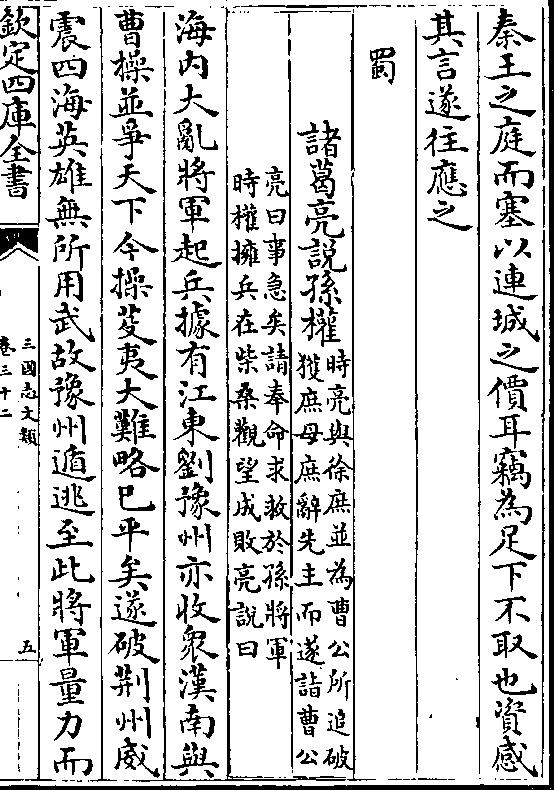 秦王之庭而塞以連城之價耳竊為足下不取也資感
其言遂往應之
蜀
諸葛亮説孫權時亮與徐庶並為曹公所追破
獲庶母庶辭先主而遂詣曹公
亮曰事急矣請奉命求救於孫將軍
時權擁兵在柴桑觀望成敗亮説曰
海内大亂將軍起兵據有江東劉豫州亦收衆漢南與
曹操並爭天下今操芟夷大難略已平矣遂破荆州威
震四海英雄無所用武故豫州遁逃至此將軍量力而
欽定四庫全書
三國志文類
卷三十二
五